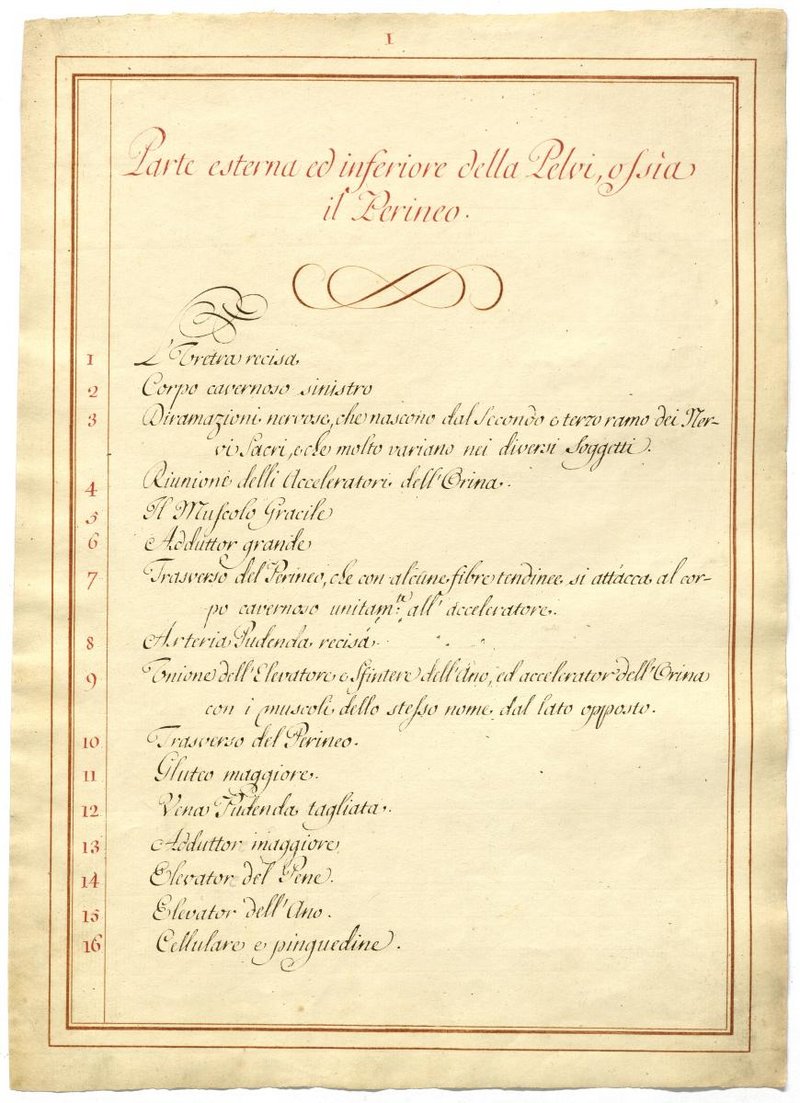 I
Parte esterna ed inferiore della Pelvi, ossìa
il Perineo.
1 L'Vretra recisa
2 Corpo cavernoso sinistro
3 Diramazioni nervose, che nascono dal secondo e terzo ramo dei Ner-
vi Sacri, e che molto variano nei diversi soggetti.
4 Riunione delli Acceleratori dell'Orina.
5 Il Muscolo Gracile
6 Adduttor grande
7 Trasverso del Perineo, che con alcune fibre tendinee si attacca al cor-
po cavernoso unitam.te all' acceleratore.
8 Arteria Pudenda recisa
9 Vnione dell'Elevatore e Sfintere dell'Ano, ed accelerator dell'Orina
con i muscoli dello stesso nome dal lato opposto.
10 Trasverso del Perineo.
11 Gluteo maggiore.
12 Vena Pudenda tagliata.
13 Adduttor maggiore
14 Elevator del Pene.
15 Elevator dell'Ano.
16 Cellulare e pinguedine.